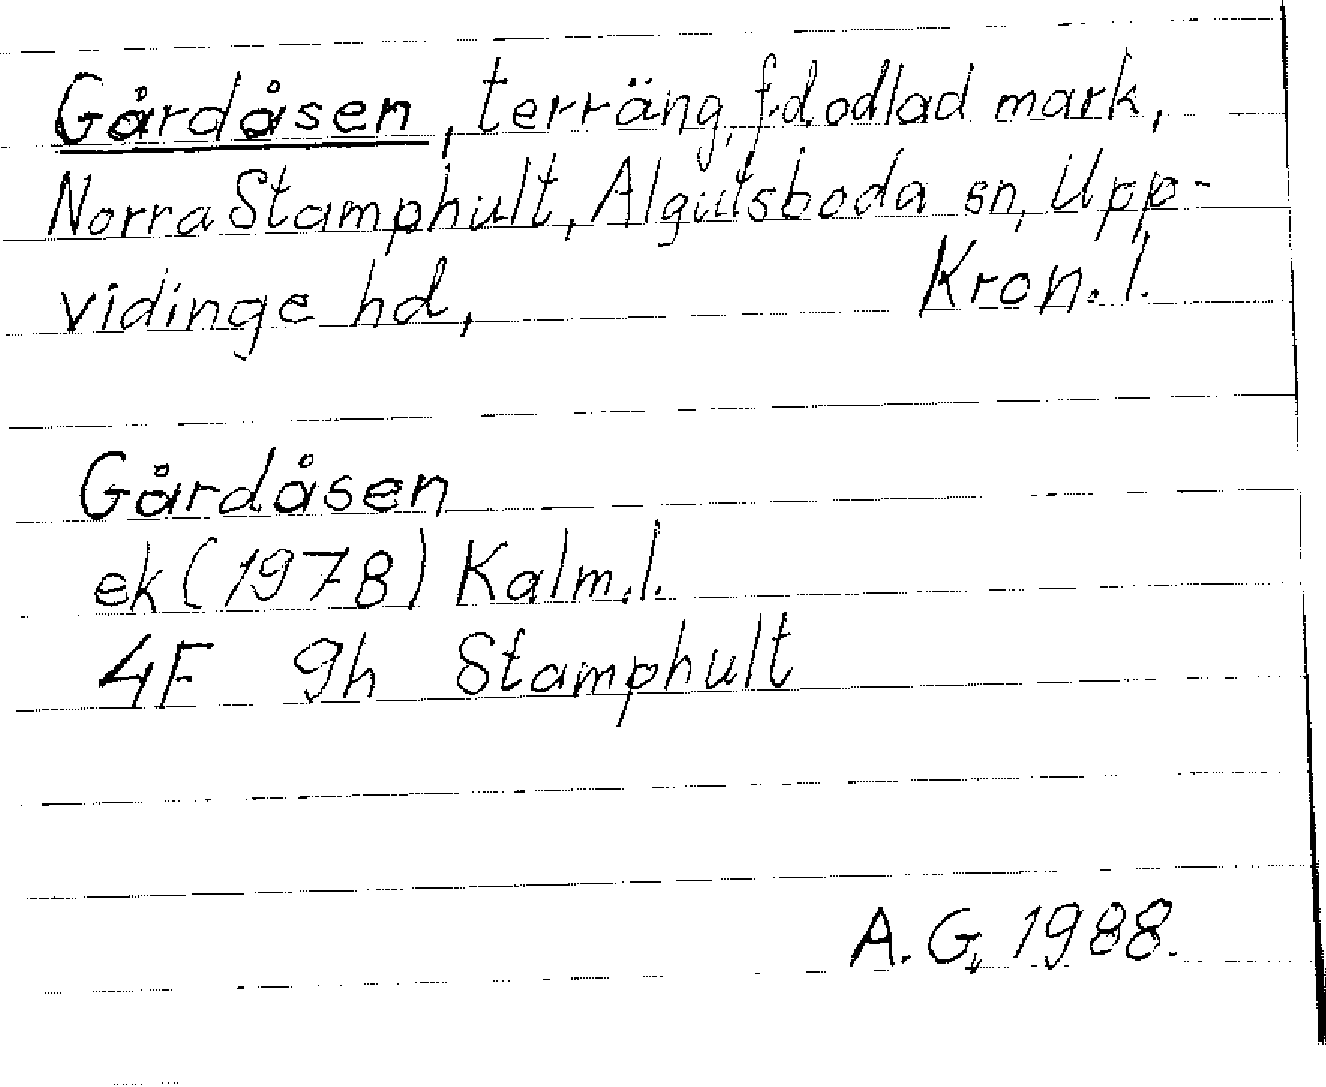 Gårdåsen, terräng, f.d. odlad mark,
Norra Stamphult, Algutsboda sn, Upp-
vidinge hd, Kron. l.
Gårdåsen
ek (1978) Kalm. l.
4F 9h Stamphult
A. G., 1988.